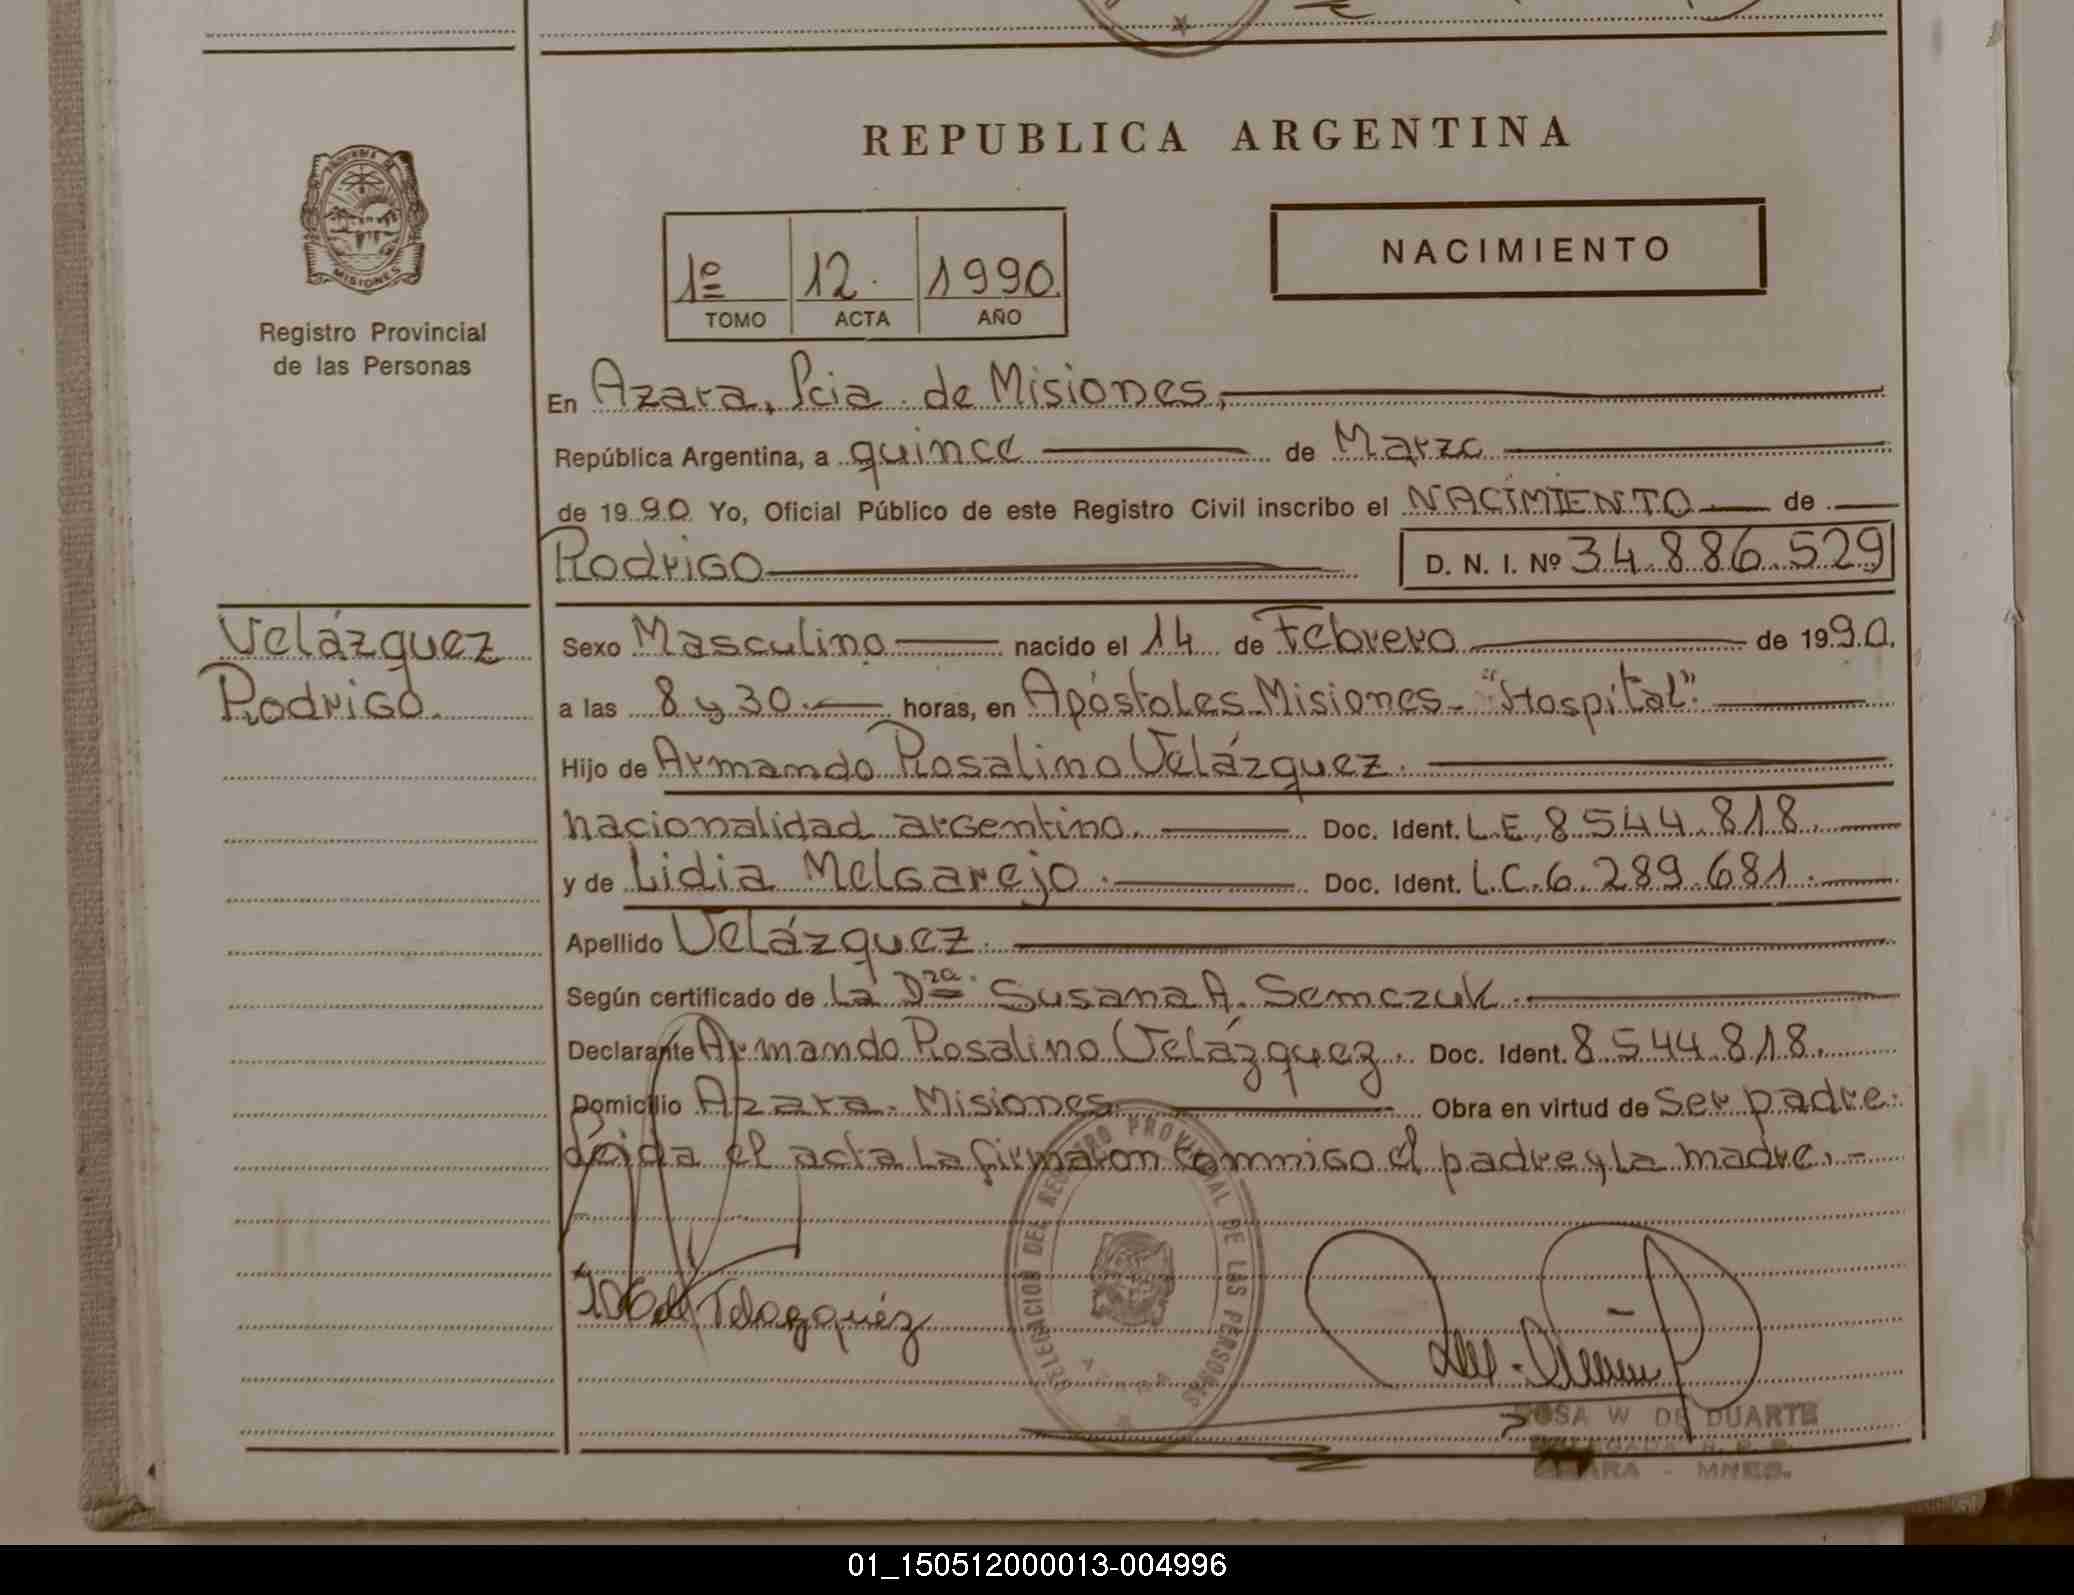 REPUBLICA ARGENTINA
PROVINCIA DE
MISIONES
Registro Provincial
de las Personas
1º 12. 1990
TOMO ACTA AÑO
NACIMIENTO
En Azara, Pcia. de Misiones,
República Argentina, a quince de Marzo
de 1990 Yo, Oficial Público de este Registro Civil inscribo el NACIMIENTO de
Rodrigo D. N. I. Nº 34.886.529
Velázquez
Rodrigo.
Sexo Masculino nacido el 14 de Febrero de 1990.
a las 8 y 30. horas, en Apóstoles Misiones - "Hospital".
Hijo de Armando Rosalino Velázquez.
nacionalidad argentino. Doc. Ident. L.E. 8544.818.
y de Lidia Melgarejo. Doc. Ident. L.C. 6.289.681.
Apellido Velázquez.
Según certificado de la Dra. Susana A. Semczuk.
Declarante Armando Rosalino Velázquez. Doc. Ident. 8.544.818.
Domicilio Azara. Misiones Obra en virtud de Ser padre.
Leida el acta la firmaron commigo el padre y la madre. -
DELEGACION DEL REGISTRO PROVINCIAL DE LAS PERSONAS
AZARA
ROSA W DE DUARTE
DELEGADA R. P. P.
AZARA - MNES.
01_150512000013-004996